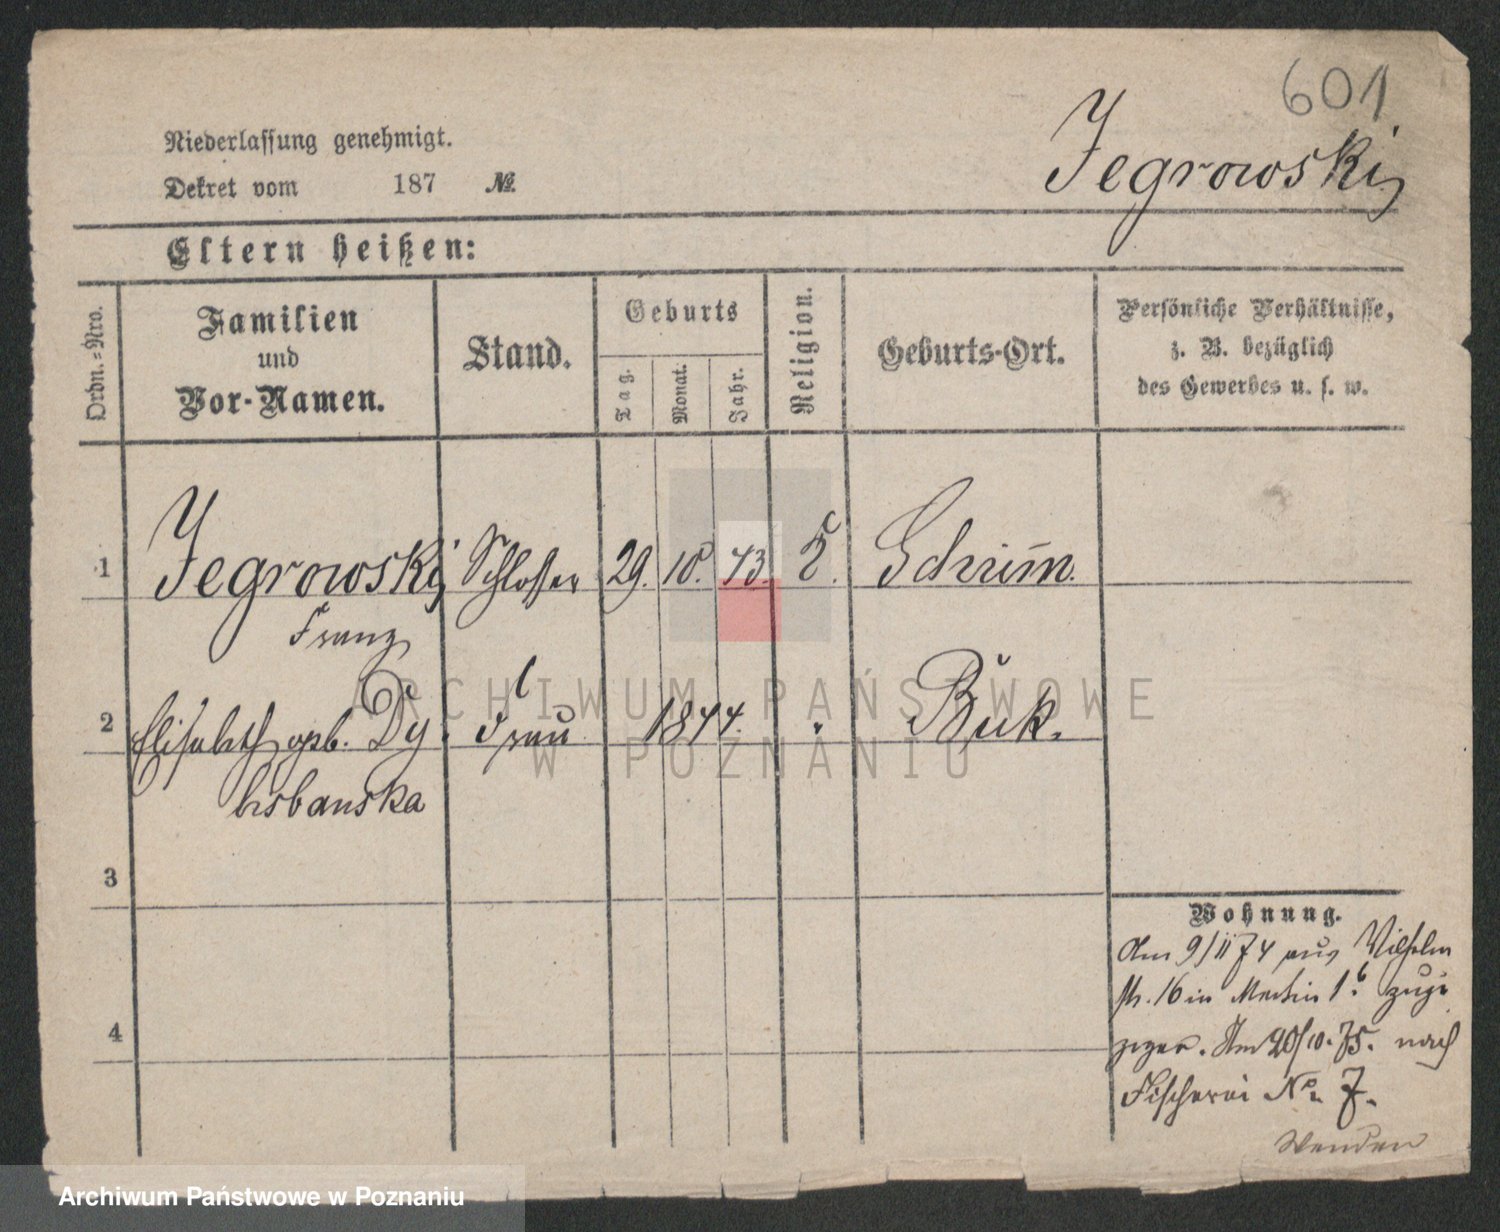 601
Niederlassung genehmigt.
Jegrowski
Dekret vom 187 №
Eltern heißen:
Ordn.=Nro.
Familien
und
Vor-Namen.
Stand.
Geburts
Tag.
Monat.
Jahr.
Religion.
Geburts-Ort.
Persönliche Verhältnisse,
z. B. bezüglich
des Gewerbes u. s. w.
1 Jegrowski Schlosser 29. 10. 43. Schrimm.
Franz
2 Elisabeth geb. Dy Frau 1844. Buk.
bisbanska
3
4
Wohnung.
Am 9/11 74 aus Wilhelm
str. 16 in Martin 1b. zuge
zogen. Am 20/10. 75. nach
Fischerei No. 7.
Wenden
ARCHIWUM PAŃSTWOWE
W POZNANIU
Archiwum Państwowe w Poznaniu